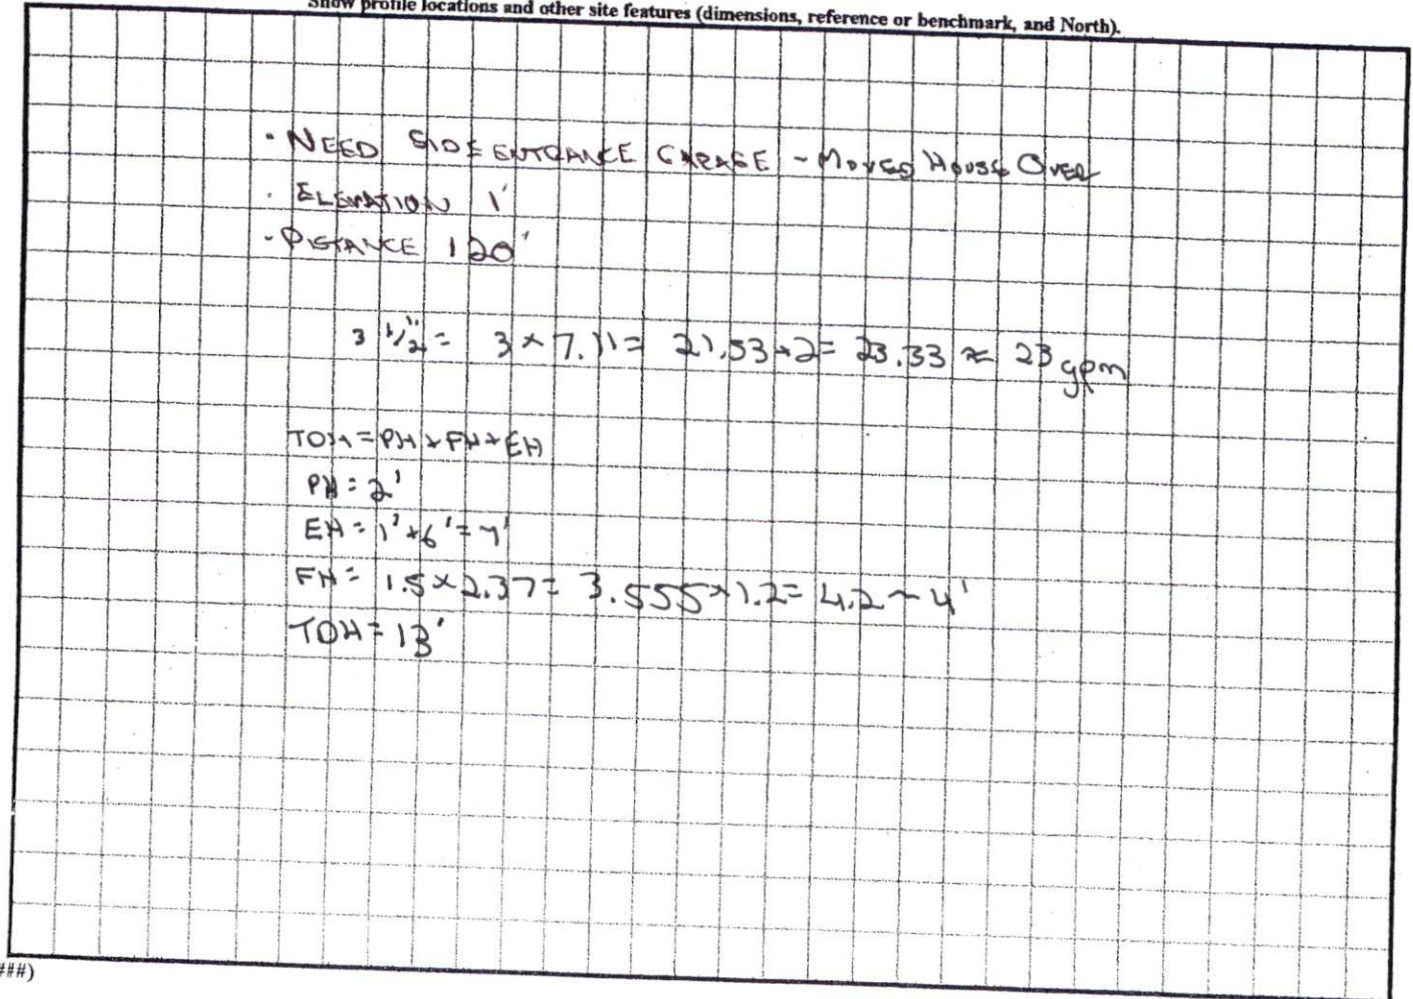 Show profile locations and other site features (dimensions, reference or benchmark, and North).
· NEED SIDE ENTRANCE GARAGE - MOVED HOUSE OVER
· ELEVATION 1'
- DISTANCE 120'
3 1/2" = 3 x 7.11 = 21.33 + 2 = 23.33 ≈ 23 gpm
TDH = PH + FH + EH
PH = 2'
EH = 1' + 6' = 7'
FH = 1.5 x 2.37 = 3.555 x 1.2 = 4.2 ~ 4'
TDH = 13'
###)